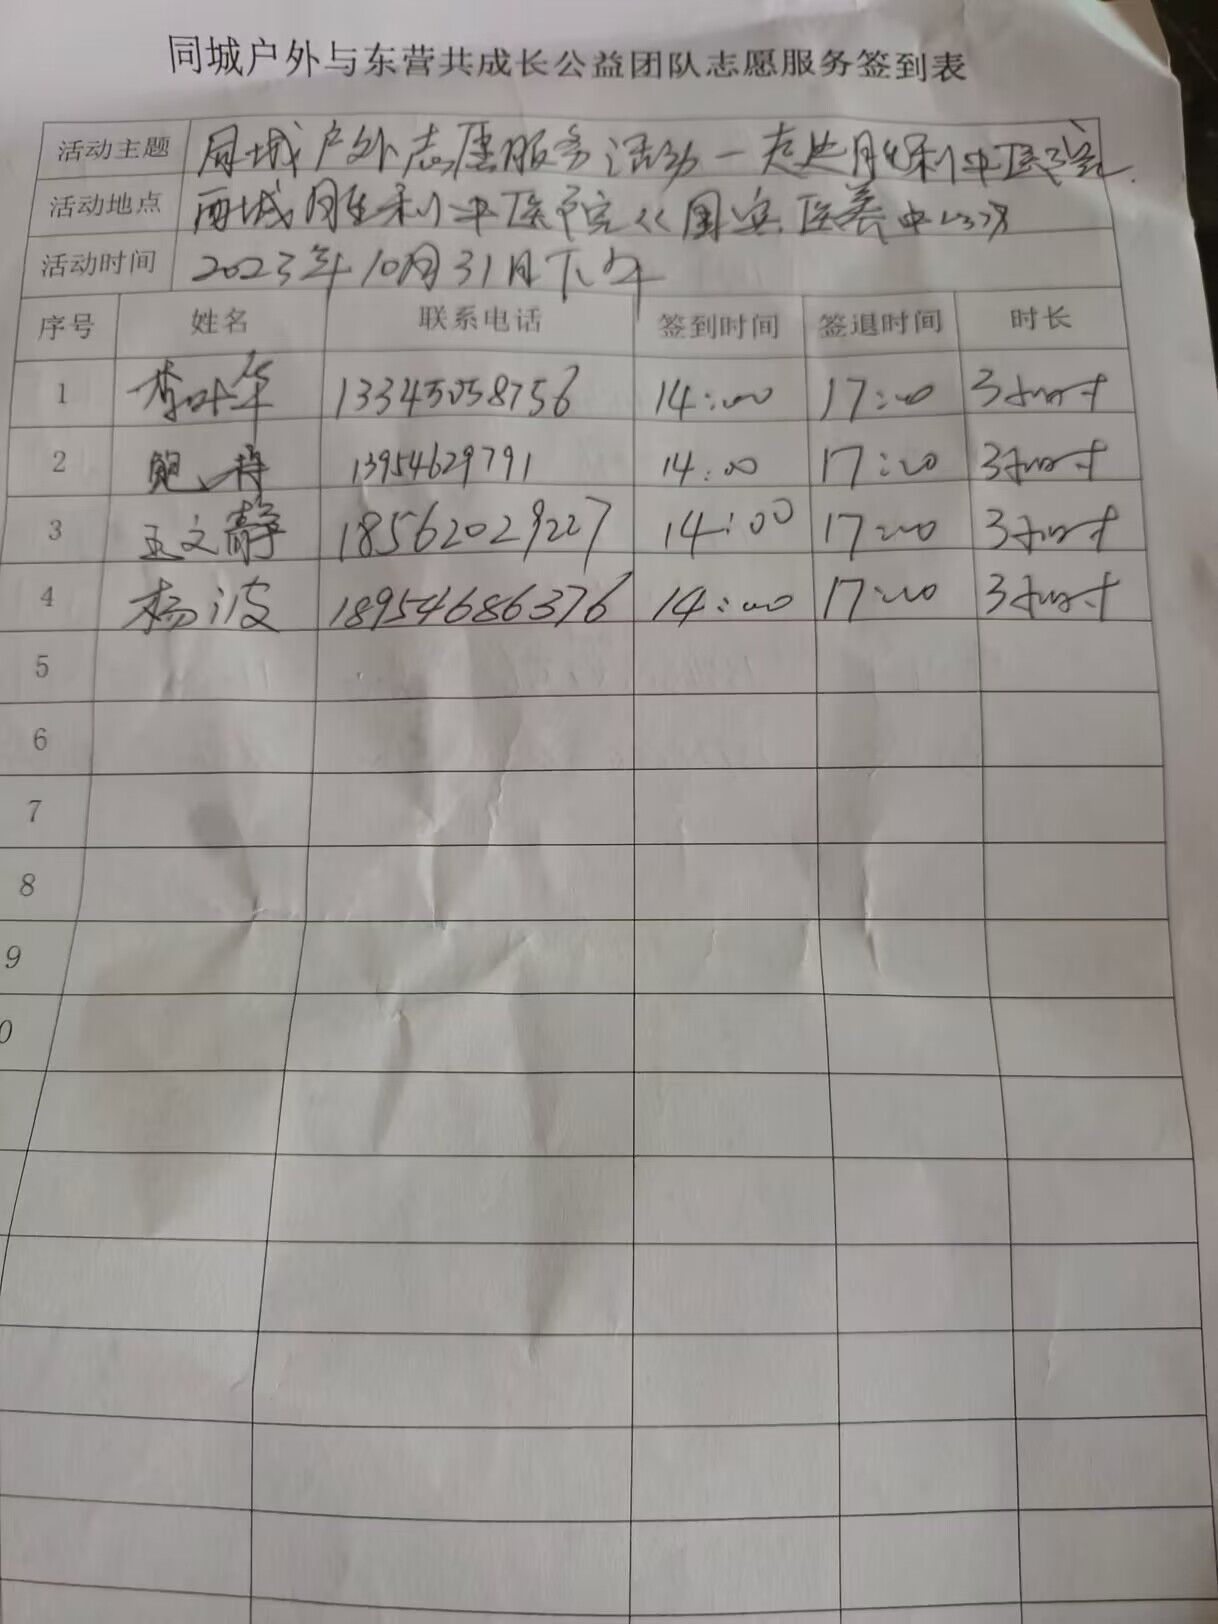 同城户外与东营共成长公益团队志愿服务签到表
活动主题 同城户外志愿服务活动一走进胜利中医院
活动地点 西城胜利中医院《国安医养中心》
活动时间 2023年10月31日下午
序号 姓名 联系电话 签到时间 签退时间 时长
1 李叶华 13345058756 14:00 17:00 3小时
2 鲍 13954629791 14:00 17:00 3小时
3 王文静 18562029227 14:00 17:00 3小时
4 杨波 18954686376 14:00 17:00 3小时
5
6
7
8
9
0